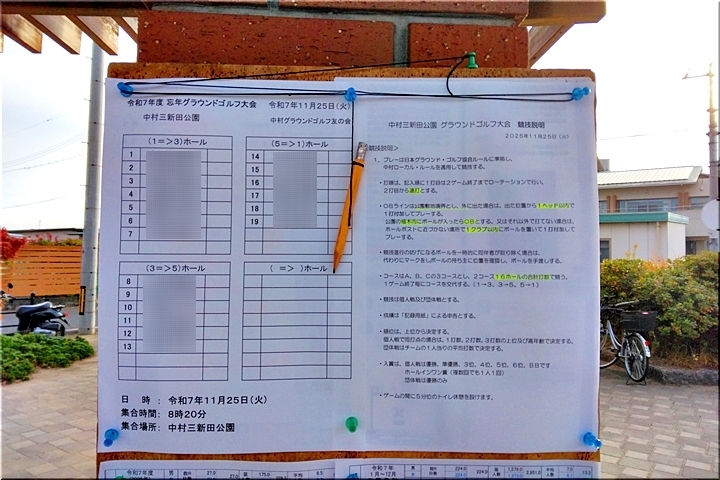 令和7年度 忘年グラウンドゴルフ大会　令和7年11月25日(火)
中村三新田公園　中村グラウンドゴルフ友の会
(1=>3)ホール
1
2
3
4
5
6
7
(5=>1)ホール
14
15
16
17
18
19
(3=>5)ホール
8
9
10
11
12
13
( => )ホール
日　時： 令和7年11月25日(火)
集合時間： 8時20分
集合場所： 中村三新田公園
中村三新田公園 グラウンドゴルフ大会 競技説明
2025年11月25日(火)
競技説明>
1、プレーは日本グラウンド・ゴルフ協会ルールに準拠し、
中村ローカル・ルールを適用して競技する。
・打順は、記入順に1打目は2ゲーム終了までローテーションで行い、
2打目から遠打とする。
・OBラインは公園敷地境界とし、外に出た場合は、出た位置から1ヘッド以内で
1打付加してプレーする。
公園の植木内にボールが入ったらOBとする。又はそれ以外で打てない場合は、
ホールポストに近づかない場所で1クラブ以内にボールを置いて1打付加して
プレーする。
・競技進行の妨げになるボールを一時的に同伴者が取り除く場合は、
代わりにマークをしボールの持ち主に位置を確認し、ボールを手渡しする。
・コースはA、B、Cの3コースとし、2コース16ホールの合計打数で競う。
1ゲーム終了毎にコースを交代する。(1→3、3→5、5→1)
・競技は個人戦及び団体戦とする。
・成績は「記録用紙」による申告とする。
・順位は、上位から決定する。
個人戦で同打点の場合は、1打数、2打数、3打数の上位及び高年齢で決定する。
団体戦はチームの1人当りの平均打数で決定する。
・入賞は、個人戦は優勝、準優勝、3位、4位、5位、6位、BBです
ホールインワン賞(複数回でも1人1回)
団体戦は優勝のみ
・ゲームの間に5分位のトイレ休憩を設けます。
令和7年度
令和7年
1月～12月